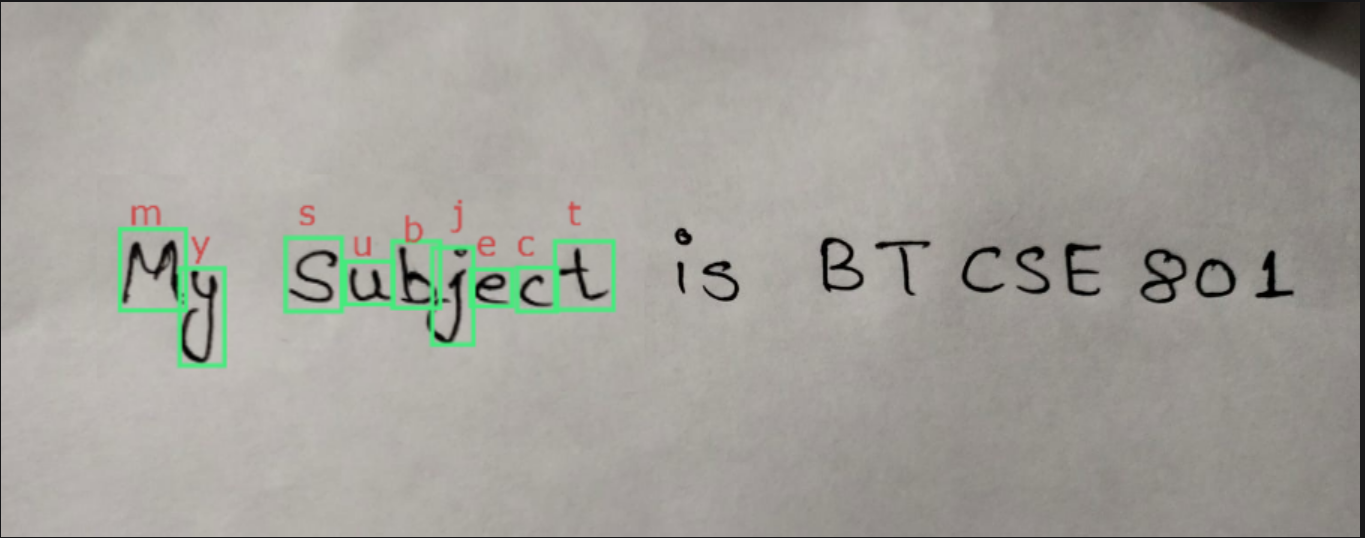 m y s u b j e c t
My Subject is BT CSE 801